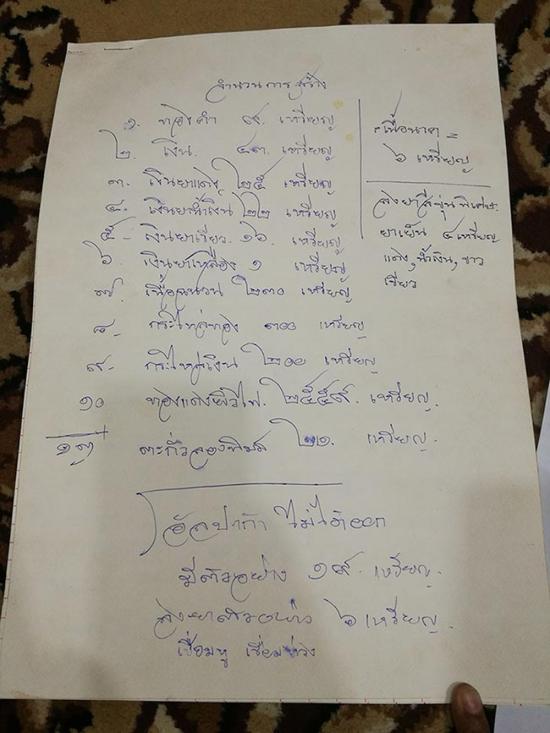 จำนวนการสร้าง
๑. ทองคำ ๙. เหรียญ
๒. เงิน. ๔๓. เหรียญ
๓. เงินยาแดง ๒๕ เหรียญ
๔. เงินยาน้ำเงิน ๒๒ เหรียญ
๕. เงินยาเขียว. ๑๖. เหรียญ
๖. เงินยาเหลือง ๑ เหรียญ
๗. เนื้อชนวน ๒๓๐ เหรียญ
๘. กะไหล่ทอง ๓๐๐ เหรียญ
๙. กะไหล่เงิน ๒๐๐ เหรียญ
๑๐ ทองแดงผิวไฟ. ๒๕๕๙. เหรียญ.
๑๑ ตะกั่วลองพิมพ์ ๒๑. เหรียญ.
เนื้อนาค =
๖ เหรียญ
ลงยาสีขุ่นพิเศษ.
ยาเย็น ๔ เหรียญ
แดง, น้ำเงิน, ขาว
เขียว
อัลปาก้า ไม่ได้ออก
มีตัวอย่าง ๑๙. เหรียญ.
ลงยา ๖ เหรียญ.
เชื่อมหู เชื่อมห่วง